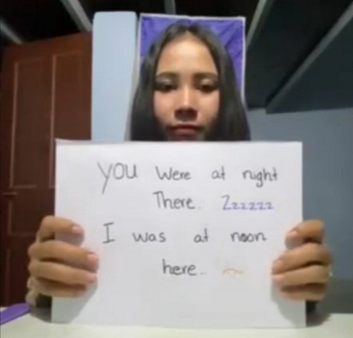 YOU Were at night
There.. Zzzzzz
I was at noon
here..